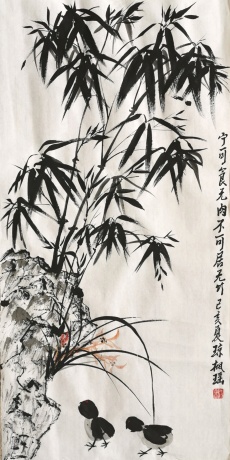 宁可食无肉不可居无竹己亥夏